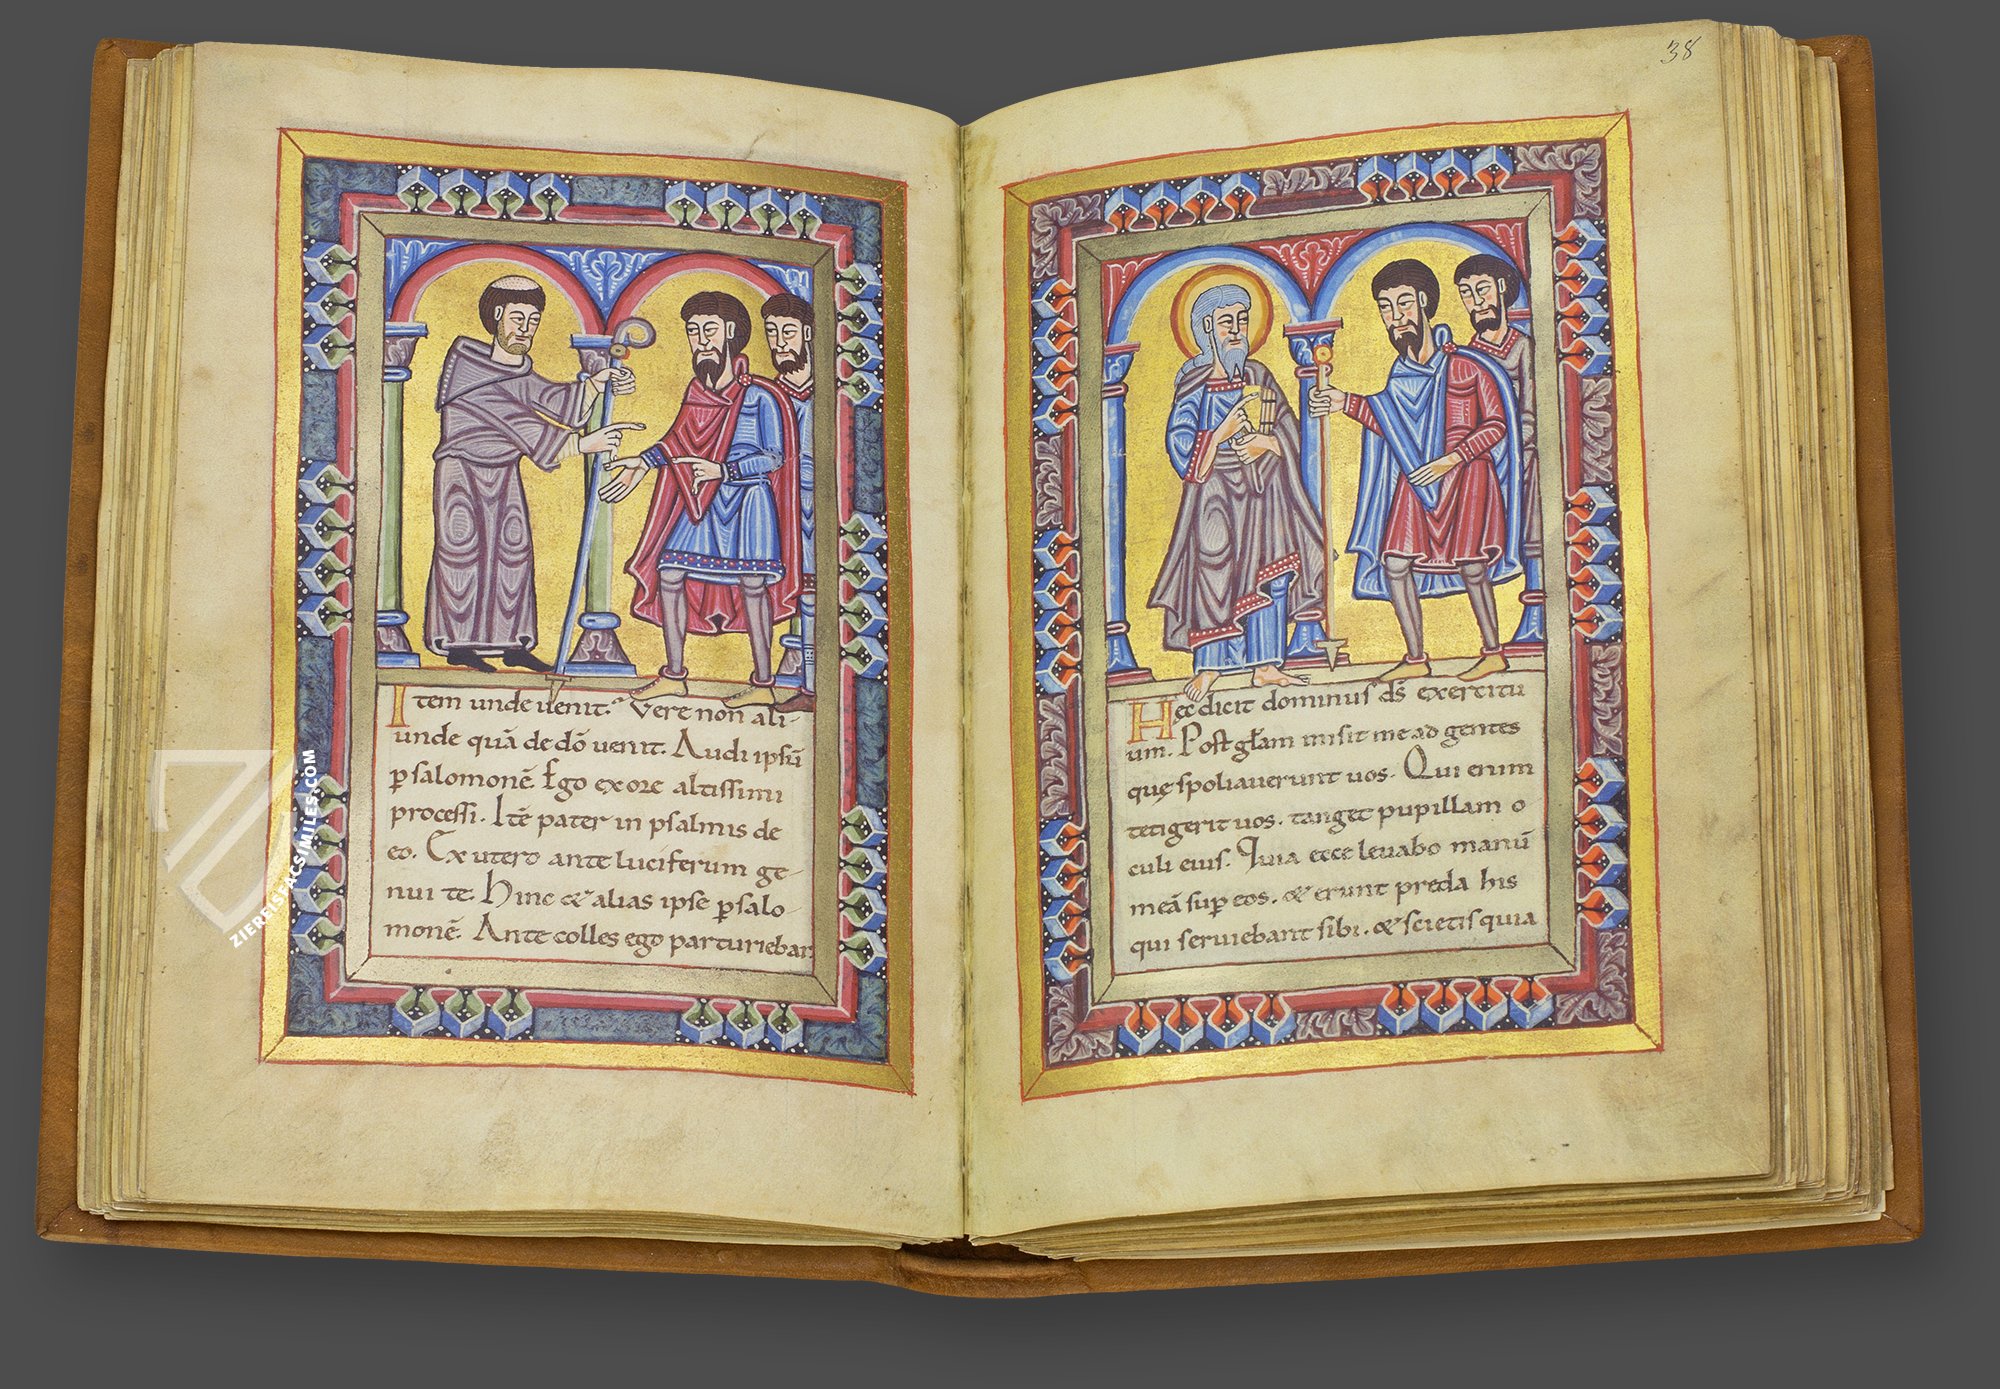 Item unde uenit. Vere non ali-
unde quā de dō uenit. Audi ipsū
ꝑ salomonē. Ego ex ore altissimi
processi. Itē pater in psalmis de
eo. Ex utero ante luciferum ge-
nui te. Hinc & alias ipse ꝑ salo-
monē. Ante colles ego parturiebar
38
Hęc dicit dominus ds̄ exercitu
um. Post gl̄am misit me ad gentes
quę spoliauerunt uos. Qui enim
tetigerit uos. tanget pupillam o
culi eius. Quia ecce leuabo manū
meā suꝑ eos. & erunt preda his
qui seruiebant sibi. & scietis quia
ZIEREISFACSIMILES.COM